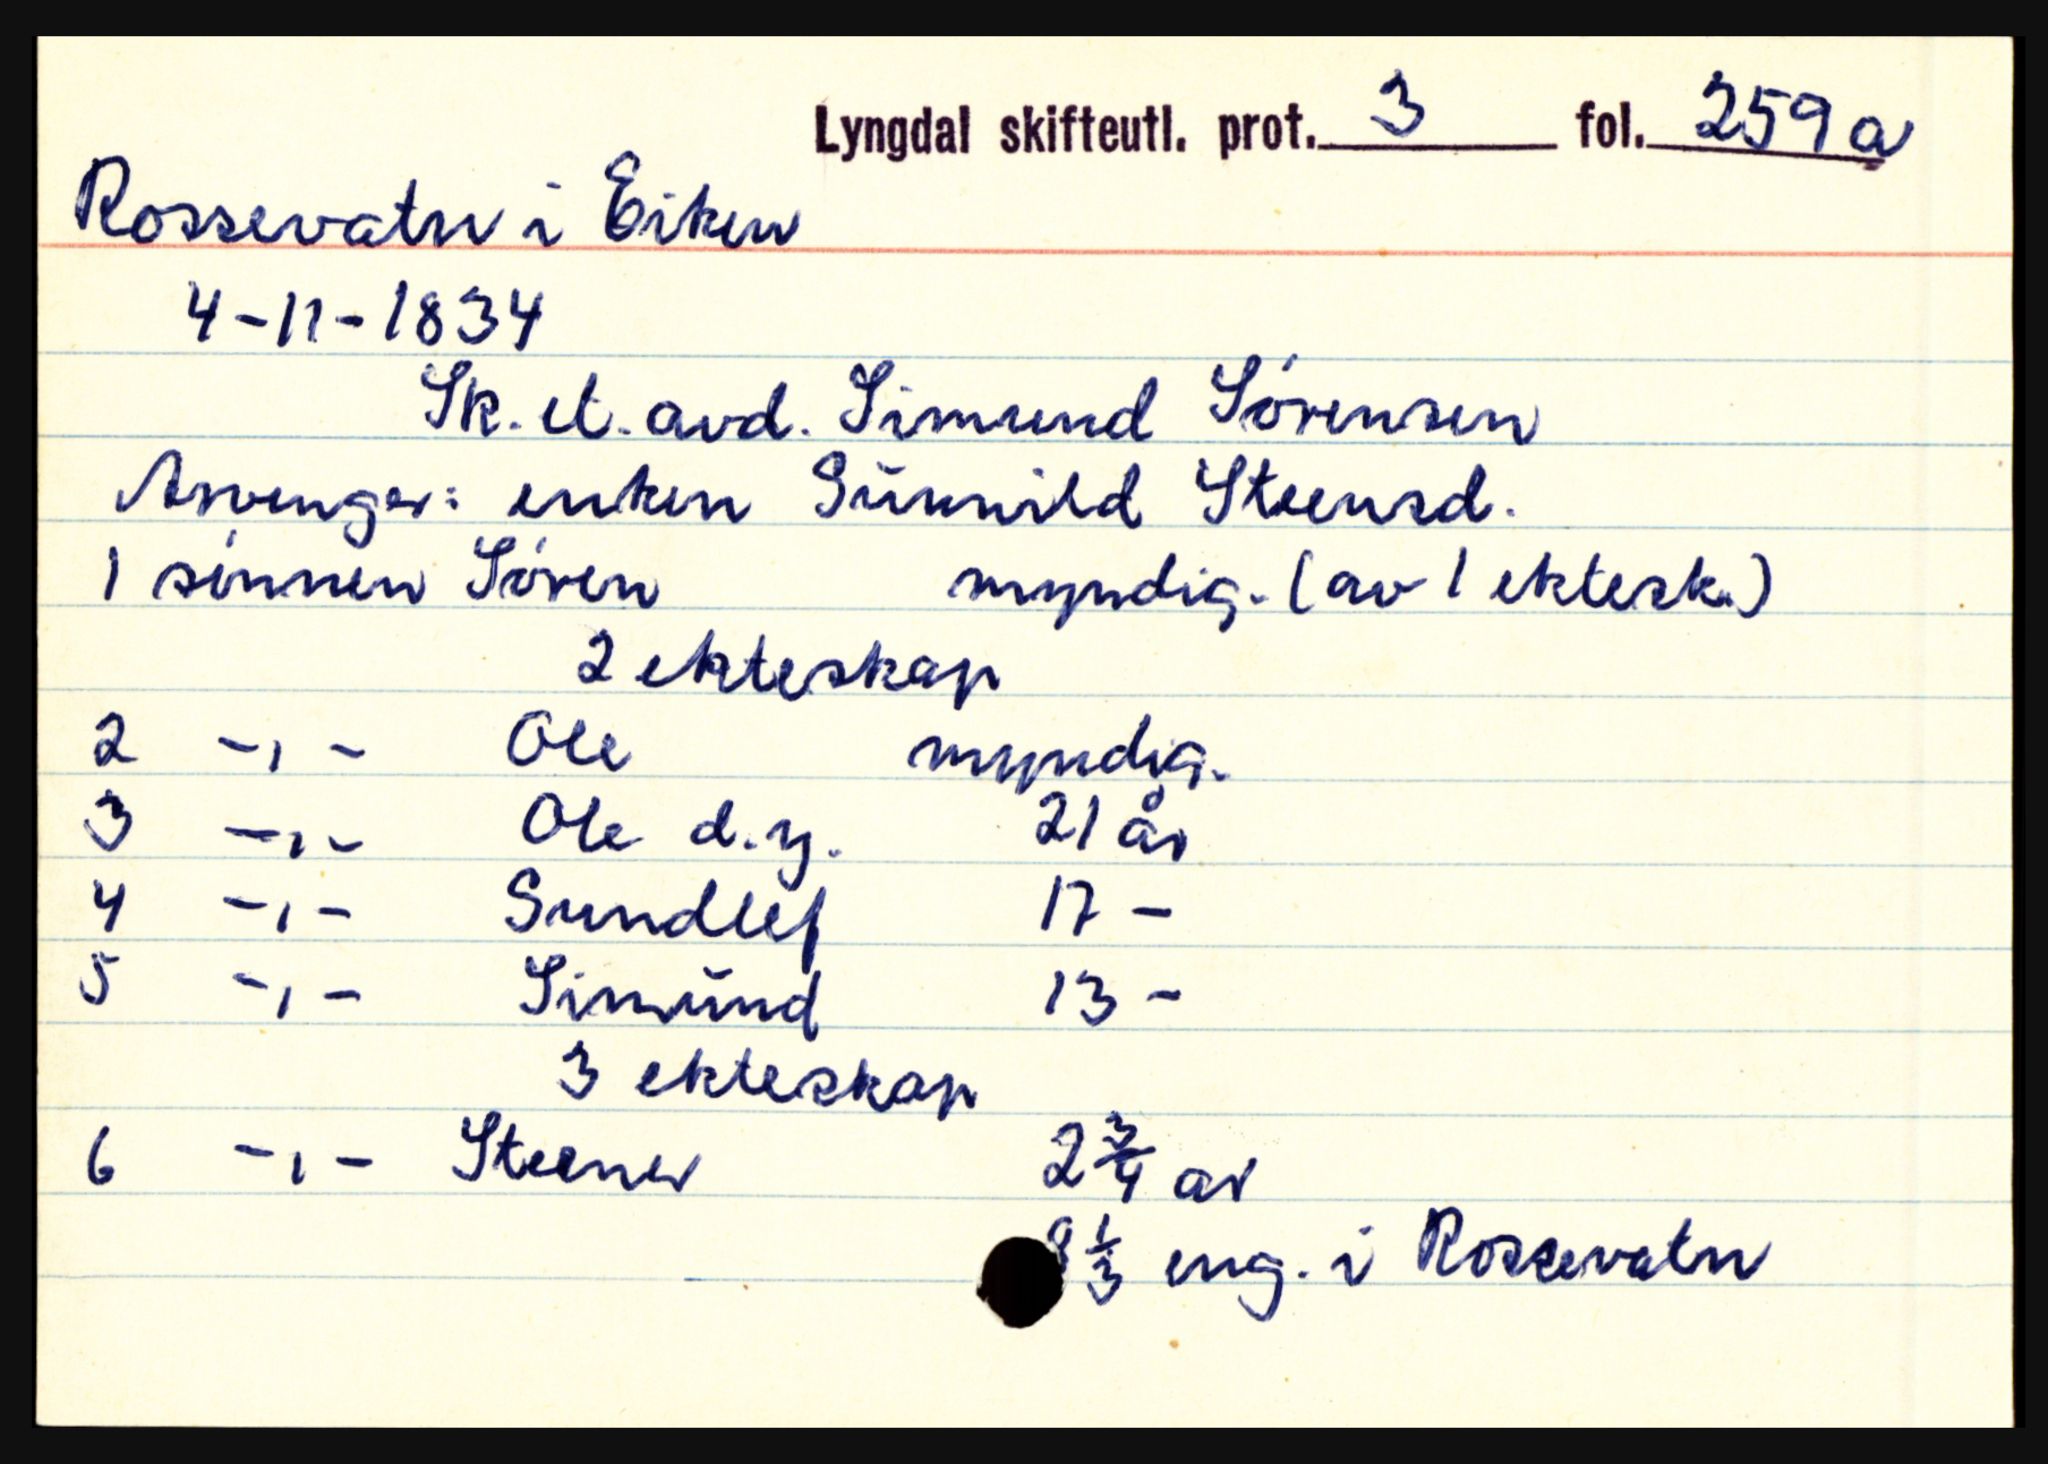 Lyngdal skifteutl. prot. 3 fol. 259 a
Rossevatn i Eiken
4-11-1834
Sk. et. avd. Simund Sørensen
Arvenger: enken Gŭnnild Steensd.
1 sønnen Søren myndig. (av 1 ektesk.)
2 ekteskap
2 -,- Ole myndig.
3 -,- Ole d.y. 21 år
4 -,- Gundlef 17 -
5 -,- Simŭnd 13 -
3 ekteskap
6 -,- Steener 2 3/4 ar
1/3 eng. i Rossevatn